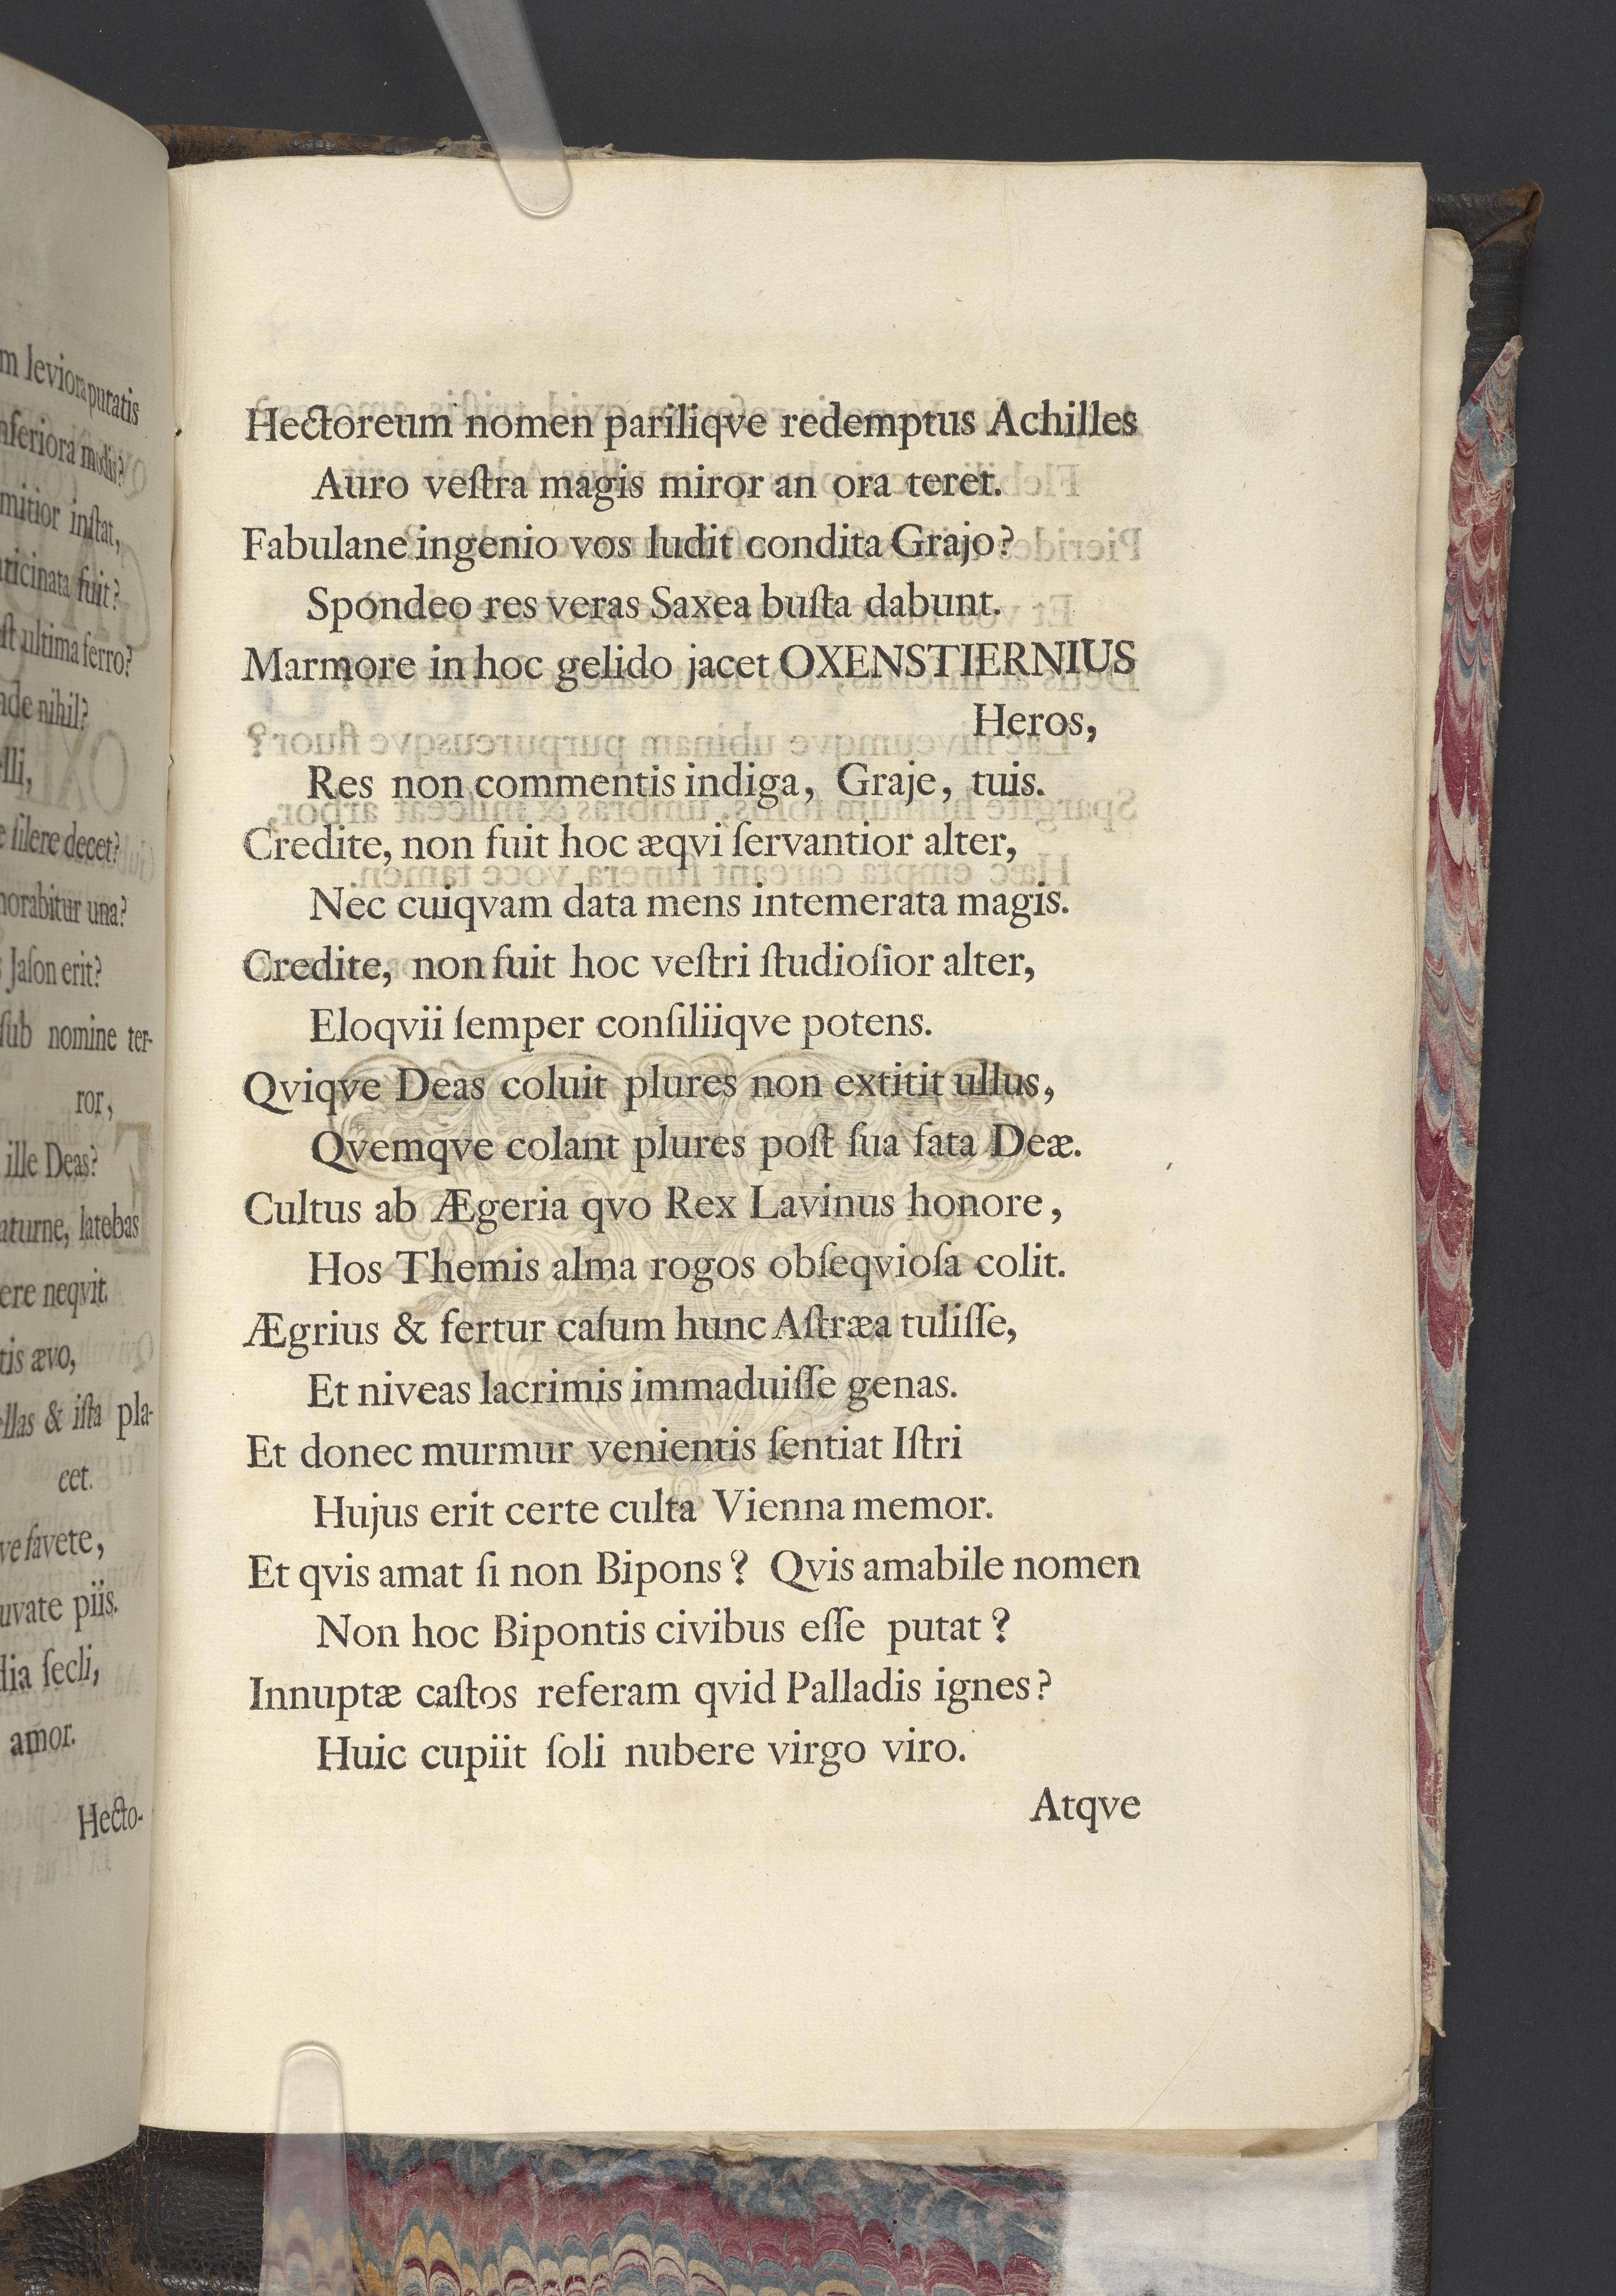 m leviora putatis
nferiora modis?
mitior inſtat,
aticinata fuit?
ſt ultima ferro?
nde nihil?
lli,
e ſilere decet?
norabitur una?
Jaſon erit?
ſub nomine ter-
ror,
ille Deas?
aturne, latebas
ere neqvit
tis ævo,
ellas & iſta pla-
cet.
ve favete,
uvate piis.
dia ſecli,
amor.
Hecto-
Hectoreum nomen pariliqve redemptus Achilles
Auro veſtra magis miror an ora teret.
Fabulane ingenio vos ludit condita Grajo?
Spondeo res veras Saxea buſta dabunt.
Marmore in hoc gelido jacet OXENSTIERNIUS
Heros,
Res non commentis indiga, Graje, tuis.
Credite, non fuit hoc æqvi ſervantior alter,
Nec cuiqvam data mens intemerata magis.
Credite, non fuit hoc veſtri ſtudioſior alter,
Eloqvii ſemper conſiliiqve potens.
Qviqve Deas coluit plures non extitit ullus,
Qvemqve colant plures poſt ſua fata Deæ.
Cultus ab Ægeria qvo Rex Lavinus honore,
Hos Themis alma rogos obſeqvioſa colit.
Ægrius & fertur caſum hunc Aſtræa tuliſſe,
Et niveas lacrimis immaduiſſe genas.
Et donec murmur venientis ſentiat Iſtri
Hujus erit certe culta Vienna memor.
Et qvis amat ſi non Bipons? Qvis amabile nomen
Non hoc Bipontis civibus eſſe putat?
Innuptæ caſtos referam qvid Palladis ignes?
Huic cupiit ſoli nubere virgo viro.
Atqve